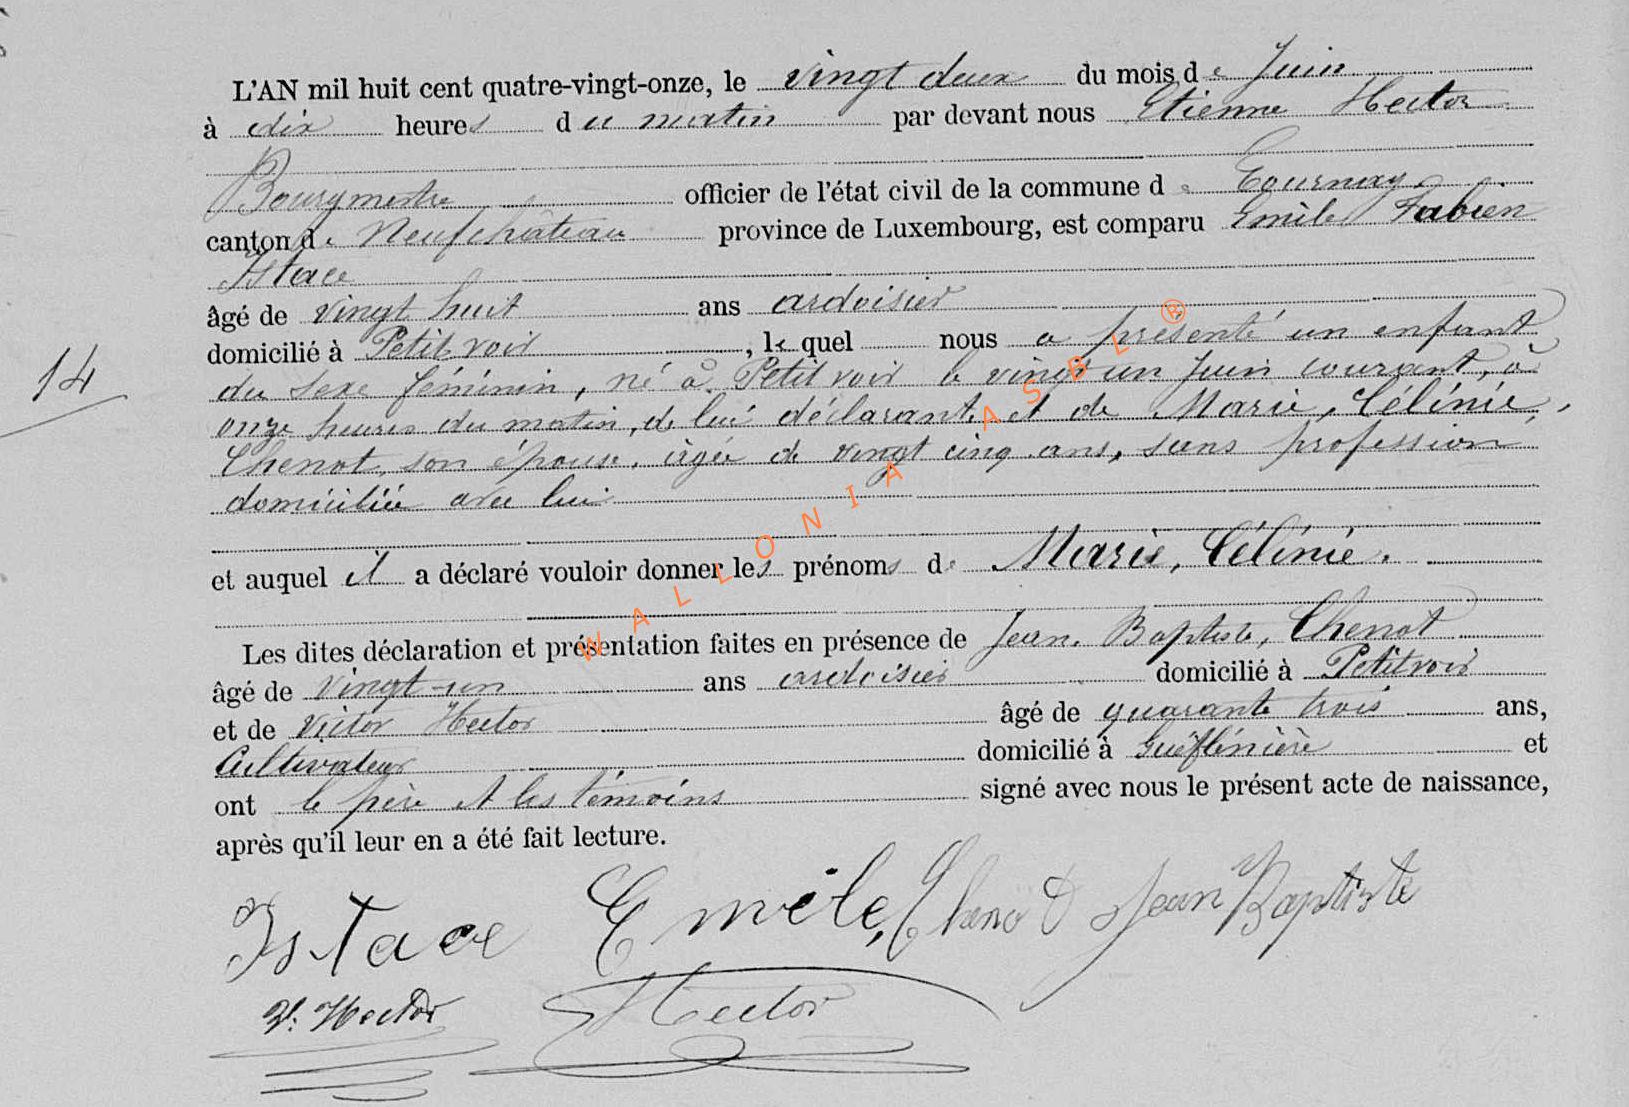 L'AN mil huit cent quatre-vingt-onze, le vingt deux du mois de Juin
à dix heures du matin par devant nous Etienne Hector
Bourgmestre officier de l'état civil de la commune de Tournay
canton de Neufchâteau province de Luxembourg, est comparu Emile Fabien
Istace
âgé de vingt huit ans ardoisier
domicilié à Petitvoir, lequel nous a présenté un enfant
14
du sexe féminin, né à Petitvoir le vingt un Juin courant, à
onze heures du matin, de lui déclarant et de Marie, Célinie,
Chenot, son épouse, âgée de vingt cinq ans, sans profession,
domiciliée avec lui
et auquel il a déclaré vouloir donner les prénoms de Marie, Célinie.
Les dites déclaration et présentation faites en présence de Jean, Baptiste, Chenot
âgé de vingt-un ans ardoisier domicilié à Petitvoir
et de Victor Hector âgé de quarante trois ans,
Cultivateur domicilié à et
ont le père et les témoins signé avec nous le présent acte de naissance,
après qu'il leur en a été fait lecture.
Istace Emile, Chenot Jean Baptiste
V. Hector Hector
WALLONIA ASBL ®